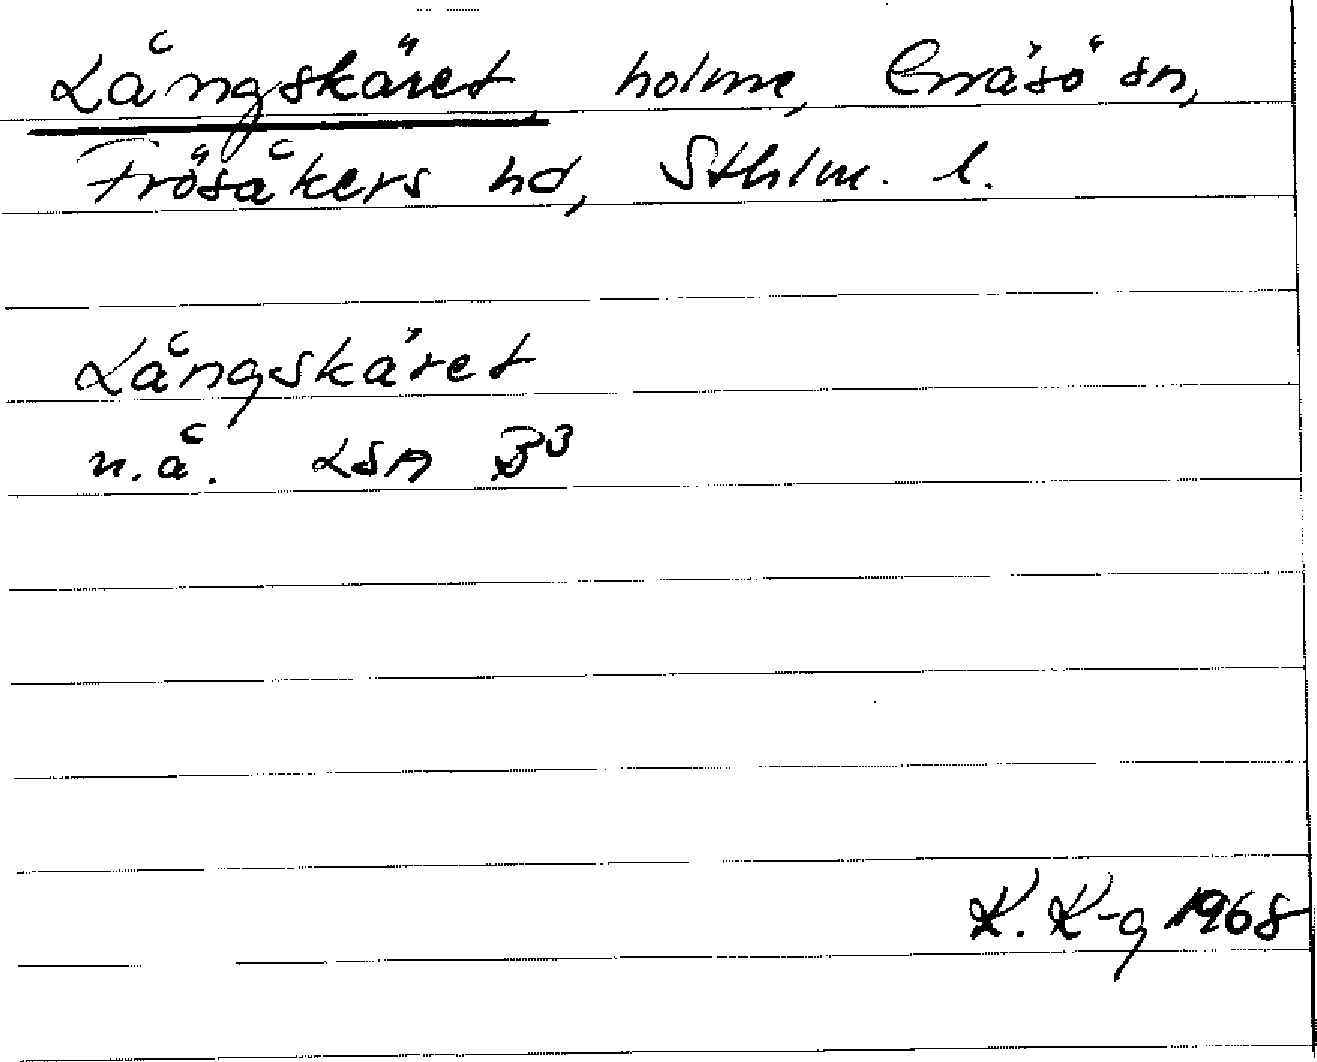 Långskäret, holme, Gräsö sn,
Frösåkers hd, Sthlm. l.
Långskäret
n.å. LSA B3
K. K-g 1968